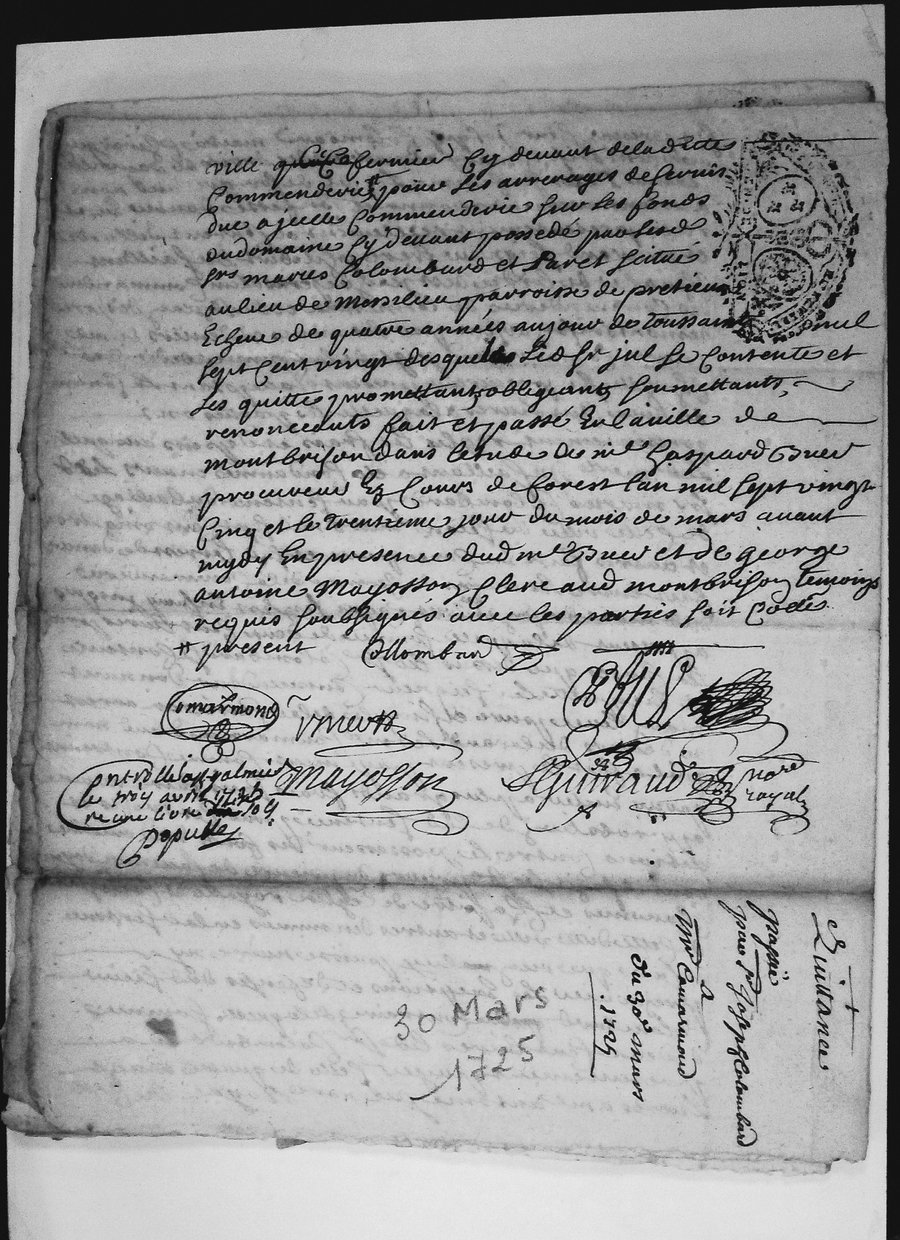 ville fermier cy devant de la ditte
Commenderie # pour les arrerages de servis
due a jcelle Commenderie sur les fonds
du domaine cy devant possedé par lesd
srs maries Colombard et Paret scitué
au lieu de Mersilieu parroisse de pretieux
Echeue de quatre années au jour de Toussaint mil
sept cent vingt desquels led sr jul se Contente et
les quitte promettants obligeants soumettants
renonceants fait et passé En la ville de
montbrison dans letude de me Gaspard Buer
procureur Ez Cours de forest lan mil sept vingt
Cinq et le trentieme jour du mois de mars avant
mydy En presence dud me Buer et de george
antoine Mayosson Clerc aud montbrison temoins
requis soubsignés avec les parties
# present Collombard
Comarmond
Mayosson Guiraud no.re
royal
le trois avril 1725
Quittance
passée
par sr Joseph Colombard
a
Mr Comarmond
du 30e mars
1725
30 Mars
1725